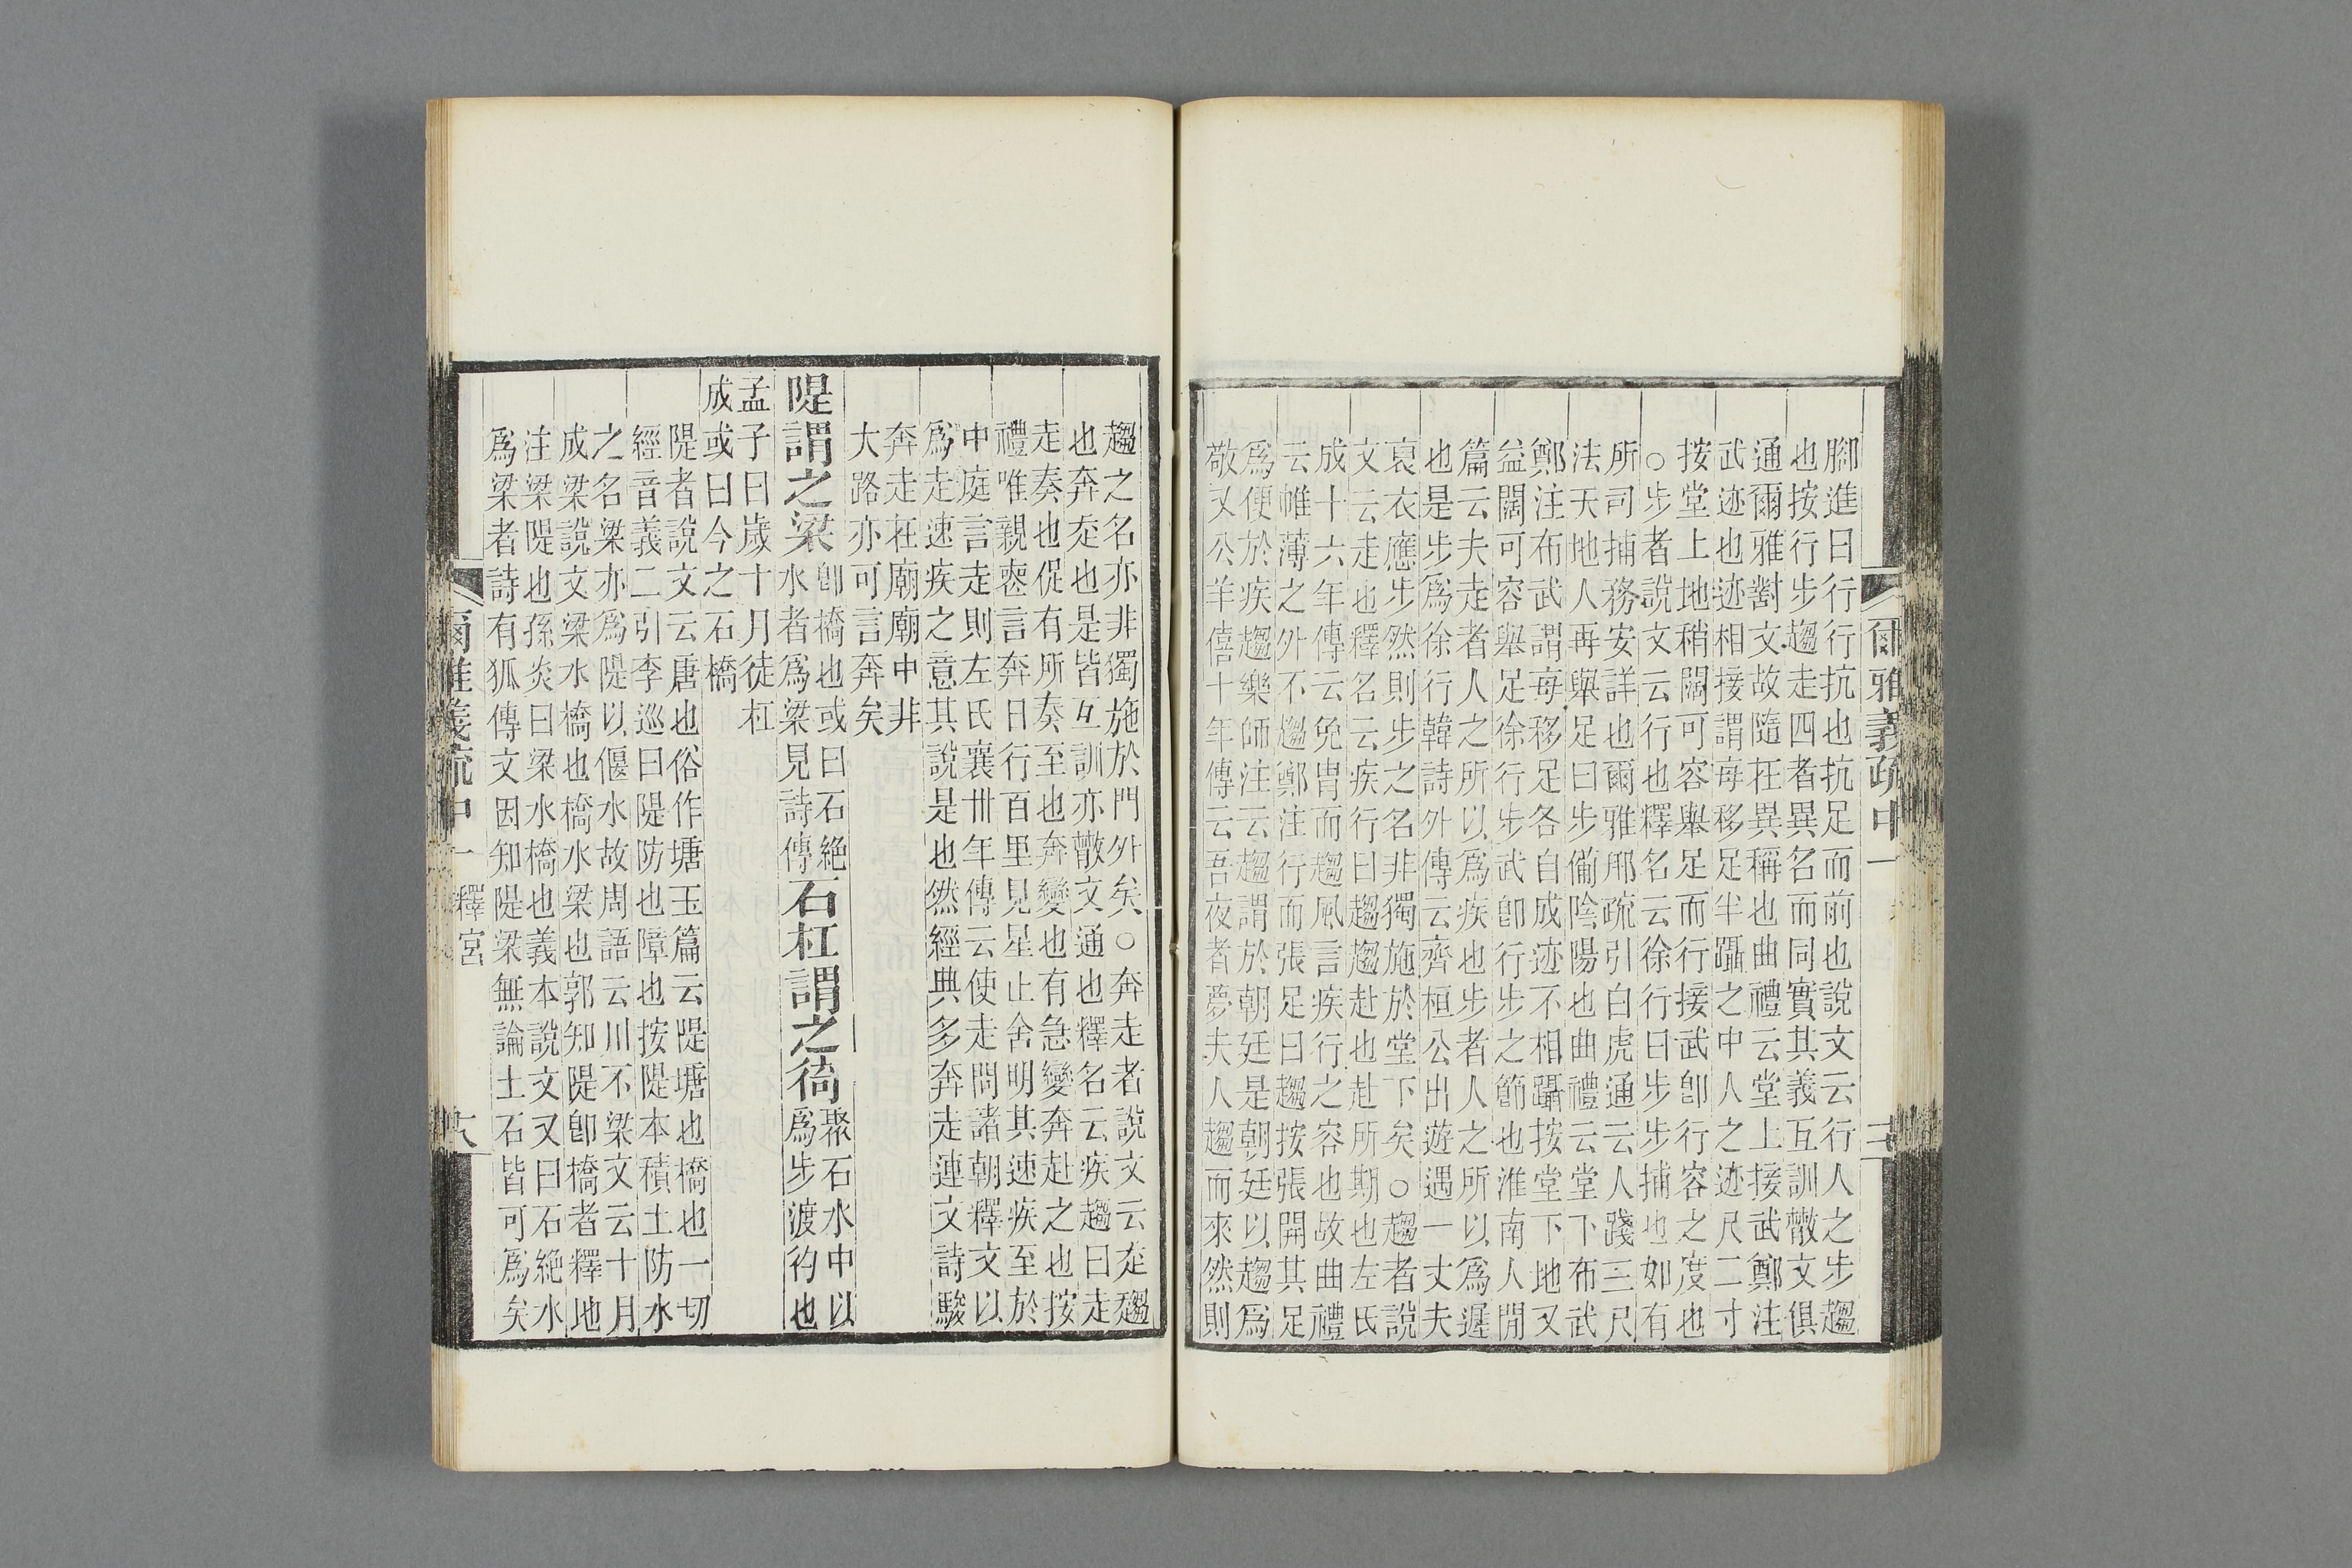 爾雅義疏中一
腳進曰行行抗也抗足而前也說文云行人之步趨
也按行步趨走四者異名而同實其義互訓散文俱
通爾雅對文故隨在異稱也曲禮云堂上接武鄭注
武迹也迹相接謂每移足半躡之中人之迹尺二寸
按堂上地稍闊可容舉足而行接武卽行容之度也
○步者說文云行也釋名云徐行曰步步捕也如有
所司捕務安詳也爾雅邢疏引白虎通云人踐三尺
法天地人再舉足曰步備陰陽也曲禮云堂下布武
鄭注布武謂每移足各自成迹不相躡按堂下地又
益闊可容舉足徐行步武卽行步之節也淮南人閒
篇云夫走者人之所以爲疾也步者人之所以爲遲
也是步爲徐行韓詩外傳云齊桓公出遊遇一丈夫
裒衣應步然則步之名非獨施於堂下矣○趨者說
文云走也釋名云疾行曰趨趨赴也赴所期也左氏
成十六年傳云免冑而趨風言疾行之容也故曲禮
云帷薄之外不趨鄭注行而張足曰趨按張開其足
爲便於疾趨樂師注云趨謂於朝廷是朝廷以趨爲
敬又公羊僖十年傳云吾夜者夢夫人趨而來然則
趨之名亦非獨施於門外矣○奔走者說文云走趨
也奔走也是皆互訓亦散文通也釋名云疾趨曰走
走奏也促有所奏至也奔變也有急變奔赴之也按
禮唯親喪言奔日行百里見星止舍明其速疾至於
中庭言走則左氏襄卅年傳云使走問諸朝釋文以
爲走速疾之意其說是也然經典多奔走連文詩駿
奔走在廟廟中非
大路亦可言奔矣
隄謂之梁
卽橋也或曰石絶
水者爲梁見詩傳
石杠謂之徛
聚石水中以
爲步渡彴也
孟子曰歲十月徒杠
成或曰今之石橋
隄者說文云唐也俗作塘玉篇云隄塘也橋也一切
經音義二引李巡曰隄防也障也按隄本積土防水
之名梁亦爲隄以偃水故周語云川不梁文云十月
成梁說文梁水橋也橋水梁也郭知隄卽橋者釋地
注梁隄也孫炎曰梁水橋也義本說文又曰石絶水
爲梁者詩有狐傳文因知隄梁無論土石皆可爲矣
爾雅義疏中一 釋宮